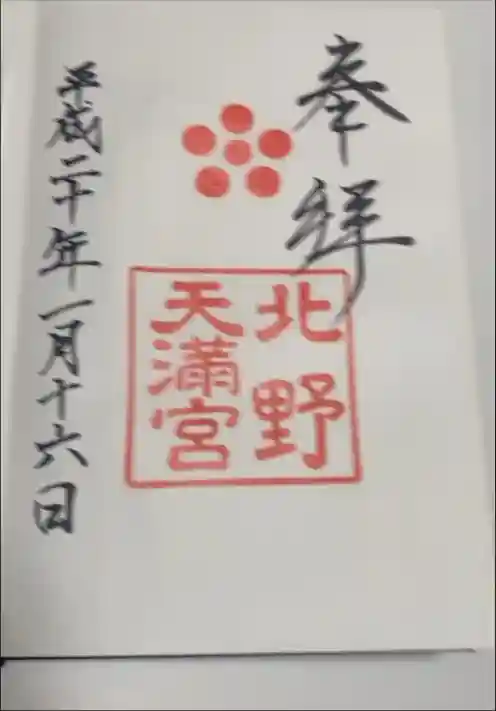 奉拝
北野
天満宮
平成二十年一月十六日